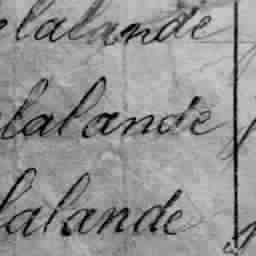 elalande
elalande
lalande